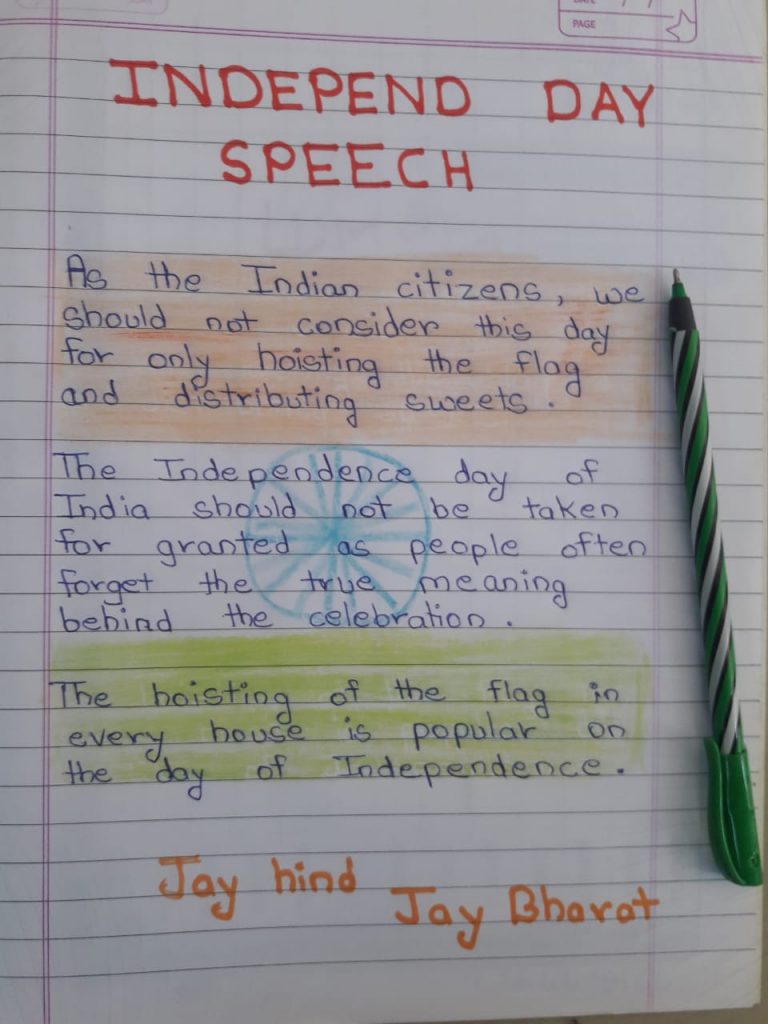 PAGE
INDEPEND DAY
SPEECH
As the Indian citizens, we
should not consider this day
for only hoisting the flag
and distributing sweets.
The Independence day of
India should not be taken
for granted as people often
forget the true meaning
behind the celebration.
The hoisting of the flag in
every house is popular on
the day of Independence.
Jay hind
Jay Bharat